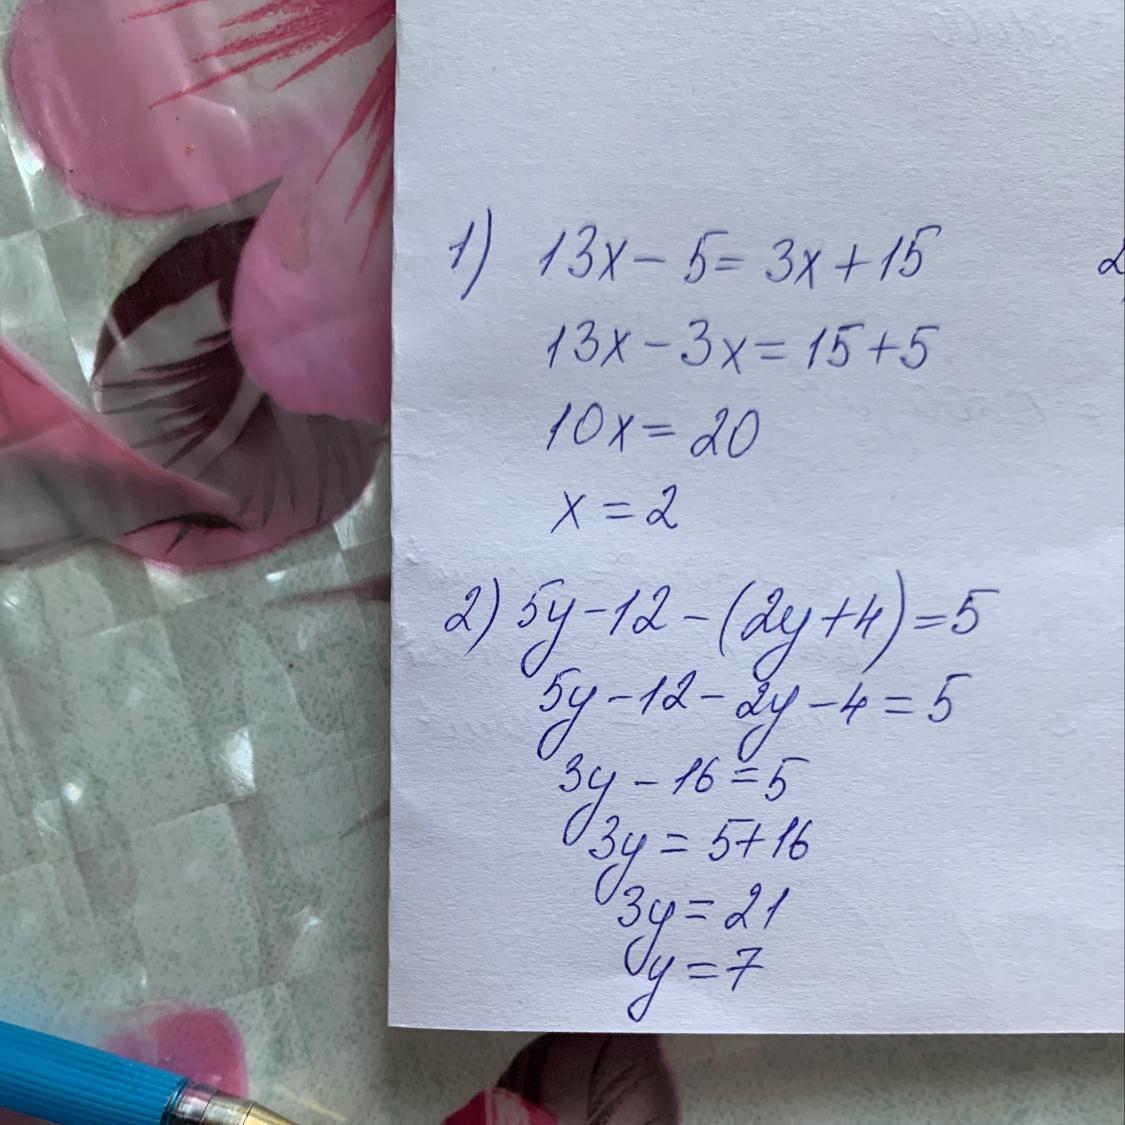 1) 13x - 5 = 3x + 15
13x - 3x = 15 + 5
10x = 20
x = 2
2) 5y - 12 - (2y + 4) = 5
5y - 12 - 2y - 4 = 5
3y - 16 = 5
3y = 5 + 16
3y = 21
y = 7